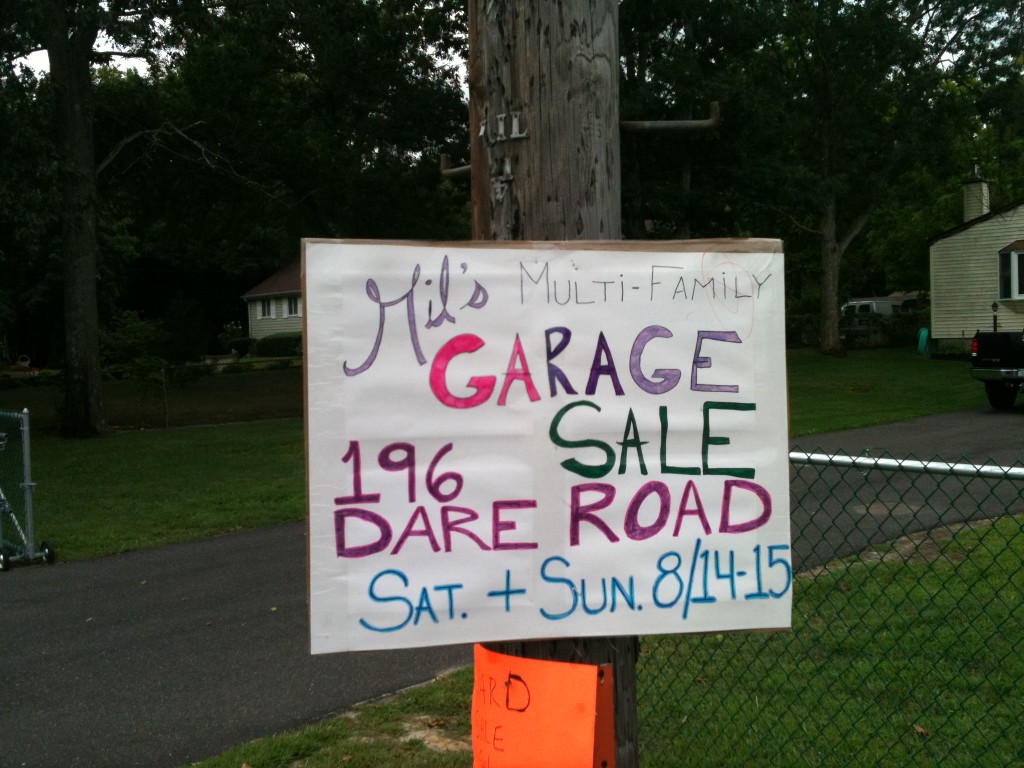 Mil's MULTI-FAMILY
GARAGE
SALE
196
DARE ROAD
SAT. + SUN. 8/14-15